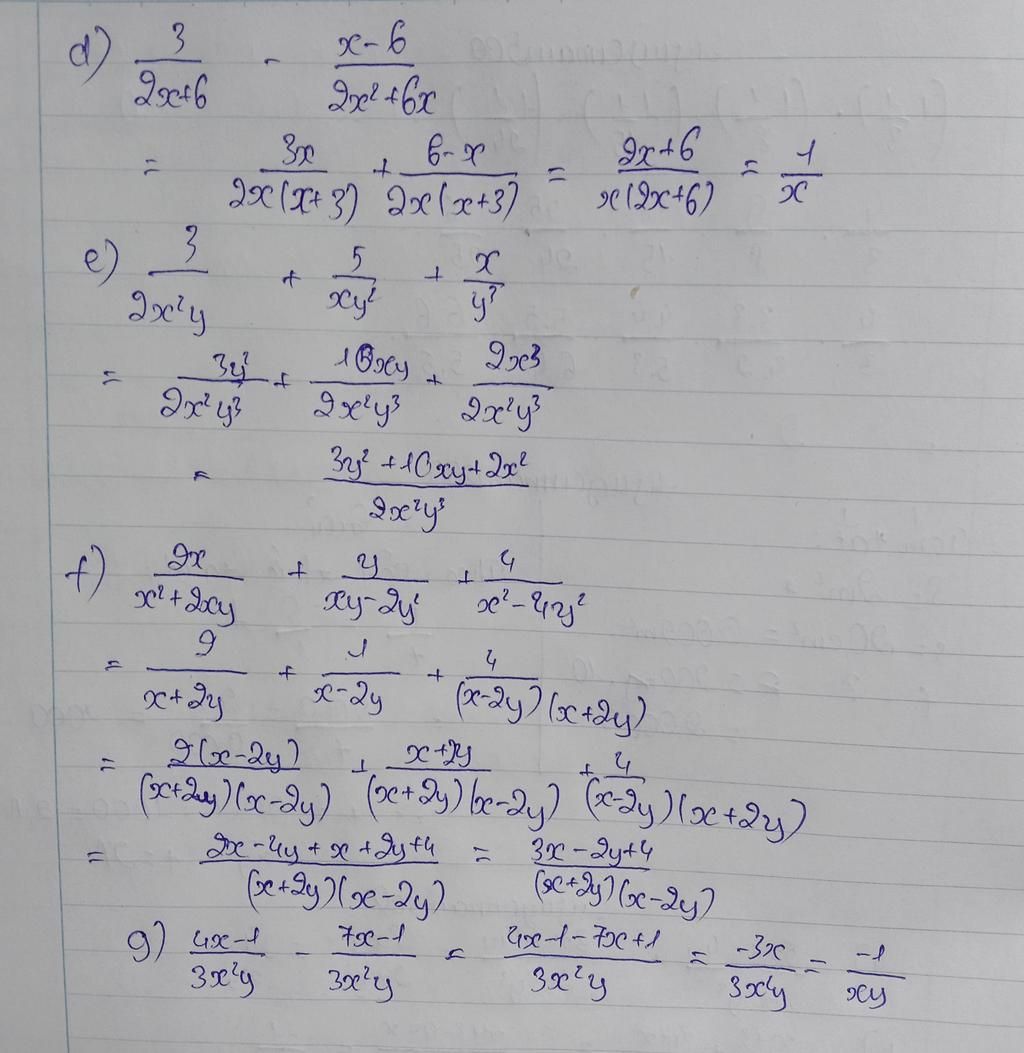 d) 3/(2x+6) - (x-6)/(2x²+6x)
= 3x/(2x(x+3)) + (6-x)/(2x(x+3)) = (2x+6)/(x(2x+6)) = 1/x
e) 3/(2x²y) + 5/(xy²) + x/y³
= 3y²/(2x²y³) + 10xy/(2x²y³) + 2x³/(2x²y³)
= (3y²+10xy+2x²)/(2x²y³)
f) 2x/(x²+2xy) + y/(xy-2y²) + 4/(x²-4y²)
= 2/(x+2y) + 1/(x-2y) + 4/((x-2y)(x+2y))
= 2(x-2y)/((x+2y)(x-2y)) + (x+2y)/((x+2y)(x-2y)) + 4/((x-2y)(x+2y))
= (2x-4y+x+2y+4)/((x+2y)(x-2y)) = (3x-2y+4)/((x+2y)(x-2y))
g) (4x-1)/(3x²y) - (7x-1)/(3x²y) = (4x-1-7x+1)/(3x²y) = -3x/(3x²y) = -1/(xy)